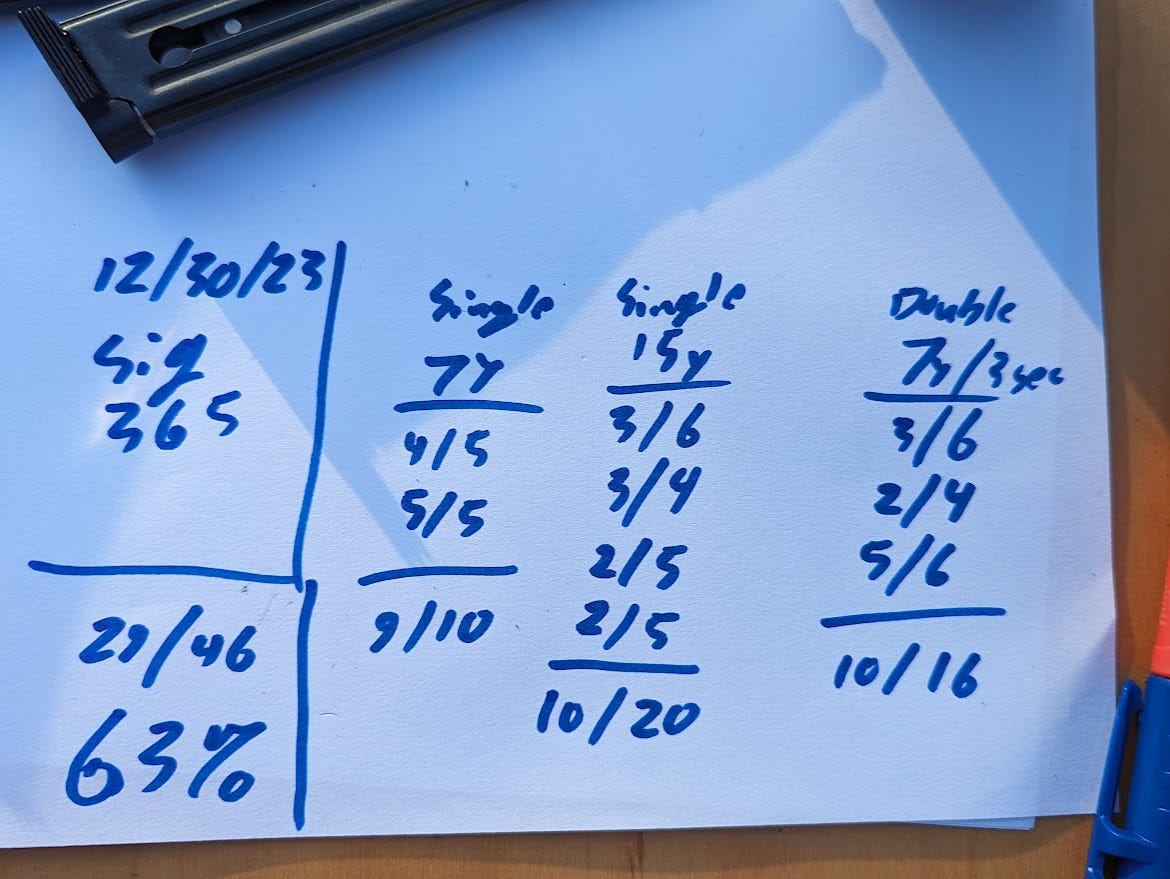 12/30/23
Sig
365
29/46
63%
Single
7y
4/5
5/5
9/10
Single
15y
3/6
3/4
2/5
2/5
10/20
Double
7y/3sec
3/6
2/4
5/6
10/16